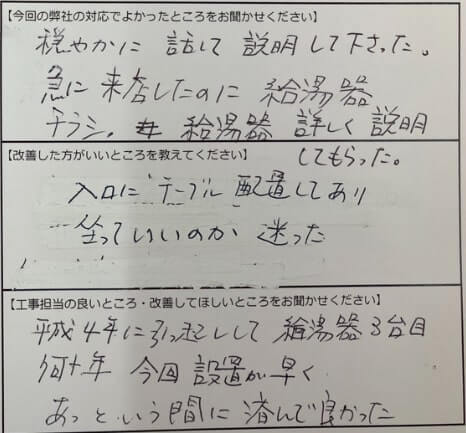 【今回の弊社の対応でよかったところをお聞かせください】
穏やかに 話して 説明して下さった。
急に来店したのに 給湯器
チラシ、 給湯器 詳しく説明
してもらった。
【改善した方がいいところを教えてください】
入口に テーブル 配置してあり
坐っていいのか 迷った
【工事担当の良いところ・改善してほしいところをお聞かせください】
平成4年に引っ越しして 給湯器3台目
何十年 今回 設置が早く
あっという間に 済んで良かった